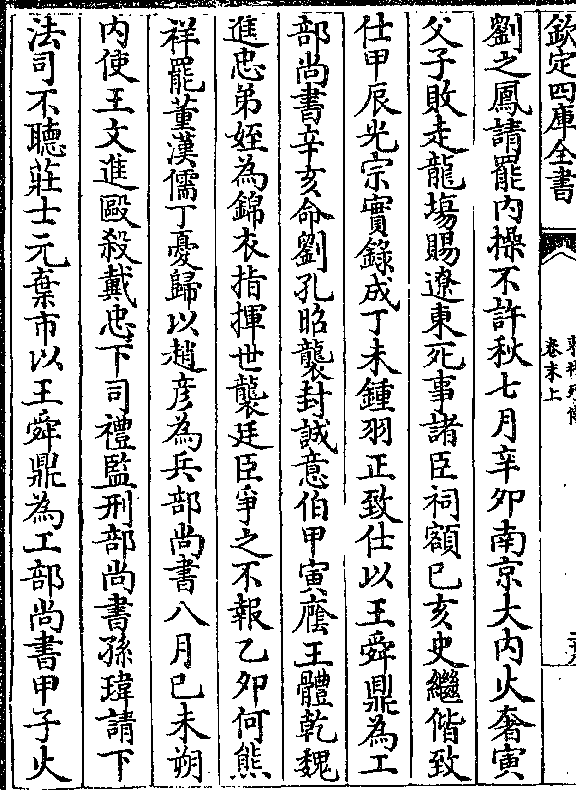 欽定四庫全書
卷末上
劉之鳳請罷內操不許秋七月辛卯南京大內火奢寅
父子敗走龍塲賜遼東死事諸臣祠額已亥史繼偕致
仕甲辰光宗實錄成丁未鍾羽正致仕以王舜鼎為工
部尚書辛亥命劉孔昭襲封誠意伯甲寅廕王體乾魏
進忠弟姪為錦衣指揮世襲廷臣爭之不報乙夘何熊
祥罷董漢儒丁憂歸以趙彥為兵部尚書八月已未朔
內使王文進毆殺戴忠下司禮監刑部尚書孫瑋請下
法司不聽莊士元棄市以王舜鼎為工部尚書甲子火